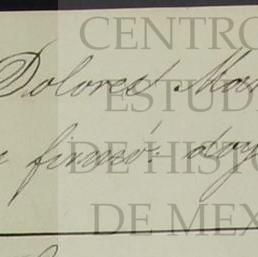 CENTRO
Dolores Ma
ESTUD
firmó: doy
DE HISTO
DE MEX